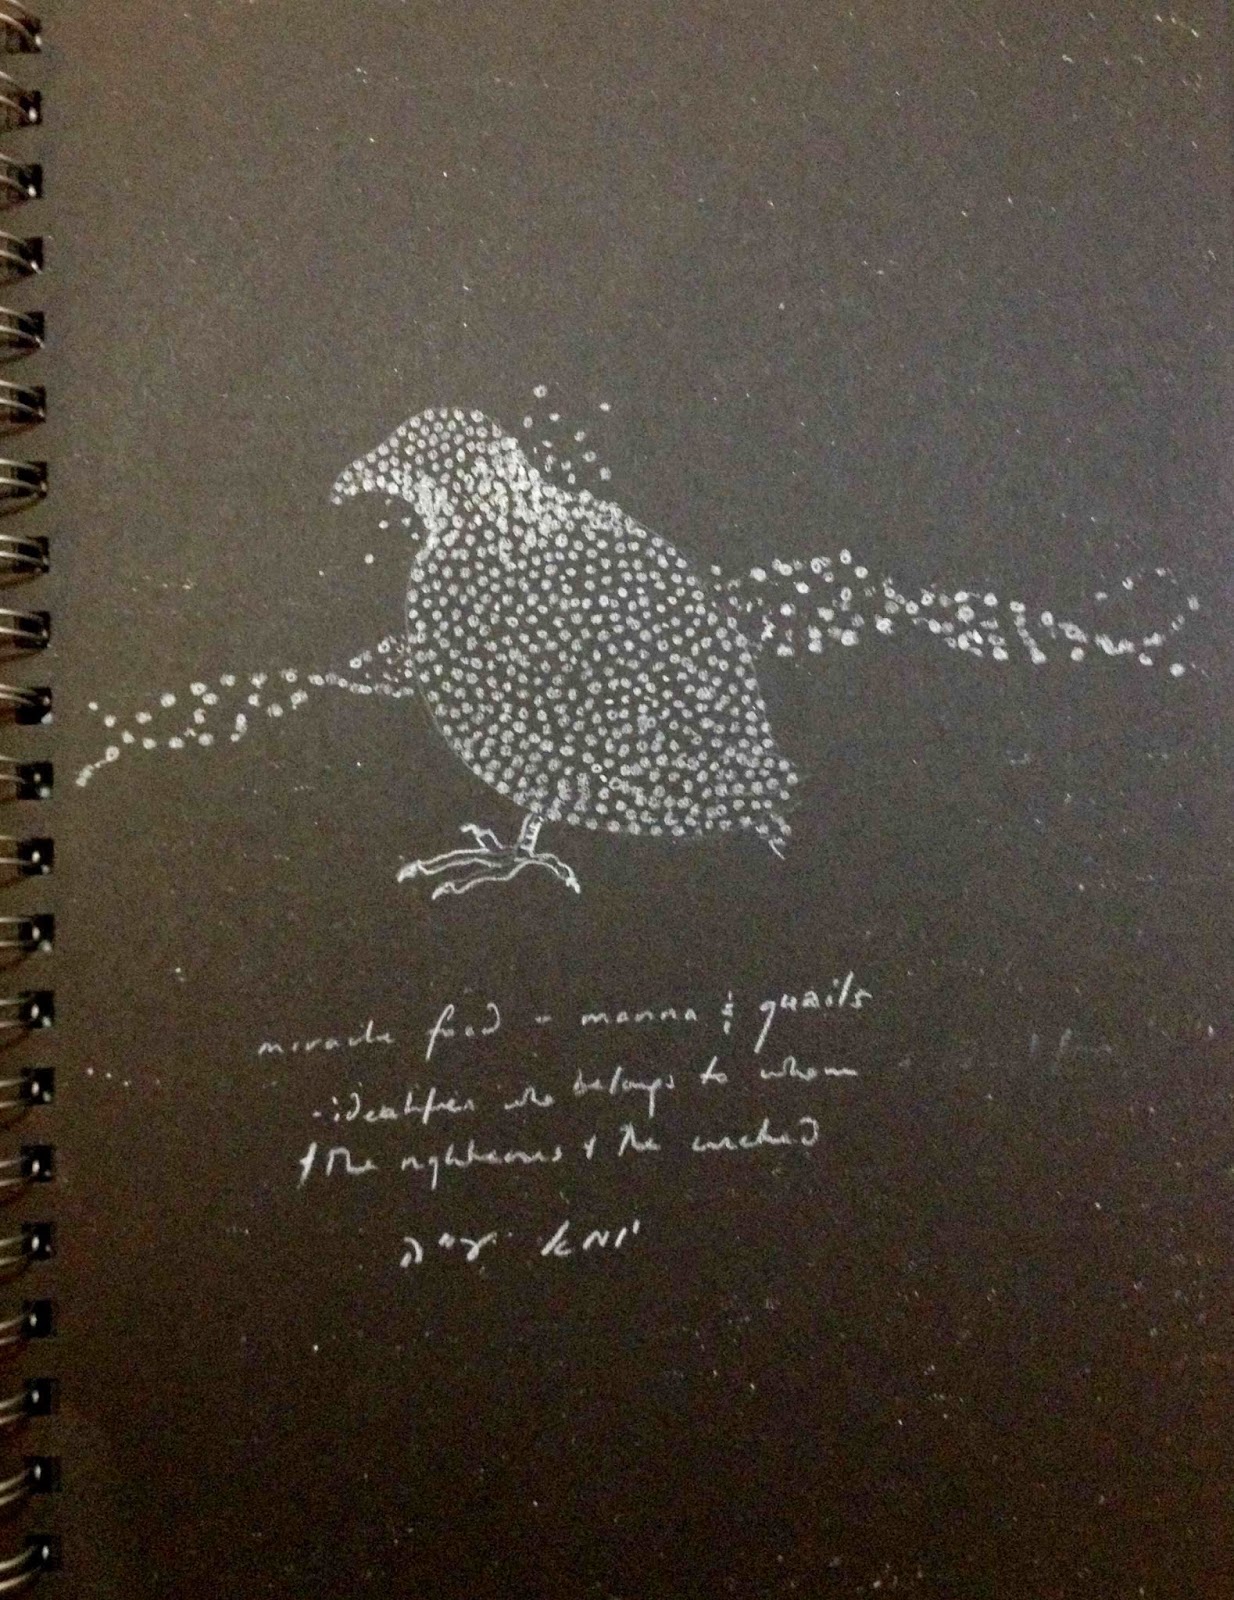 miracle food - manna & quails
- identifies who belongs to whom
& the righteous & the wicked
יומא ע״ה